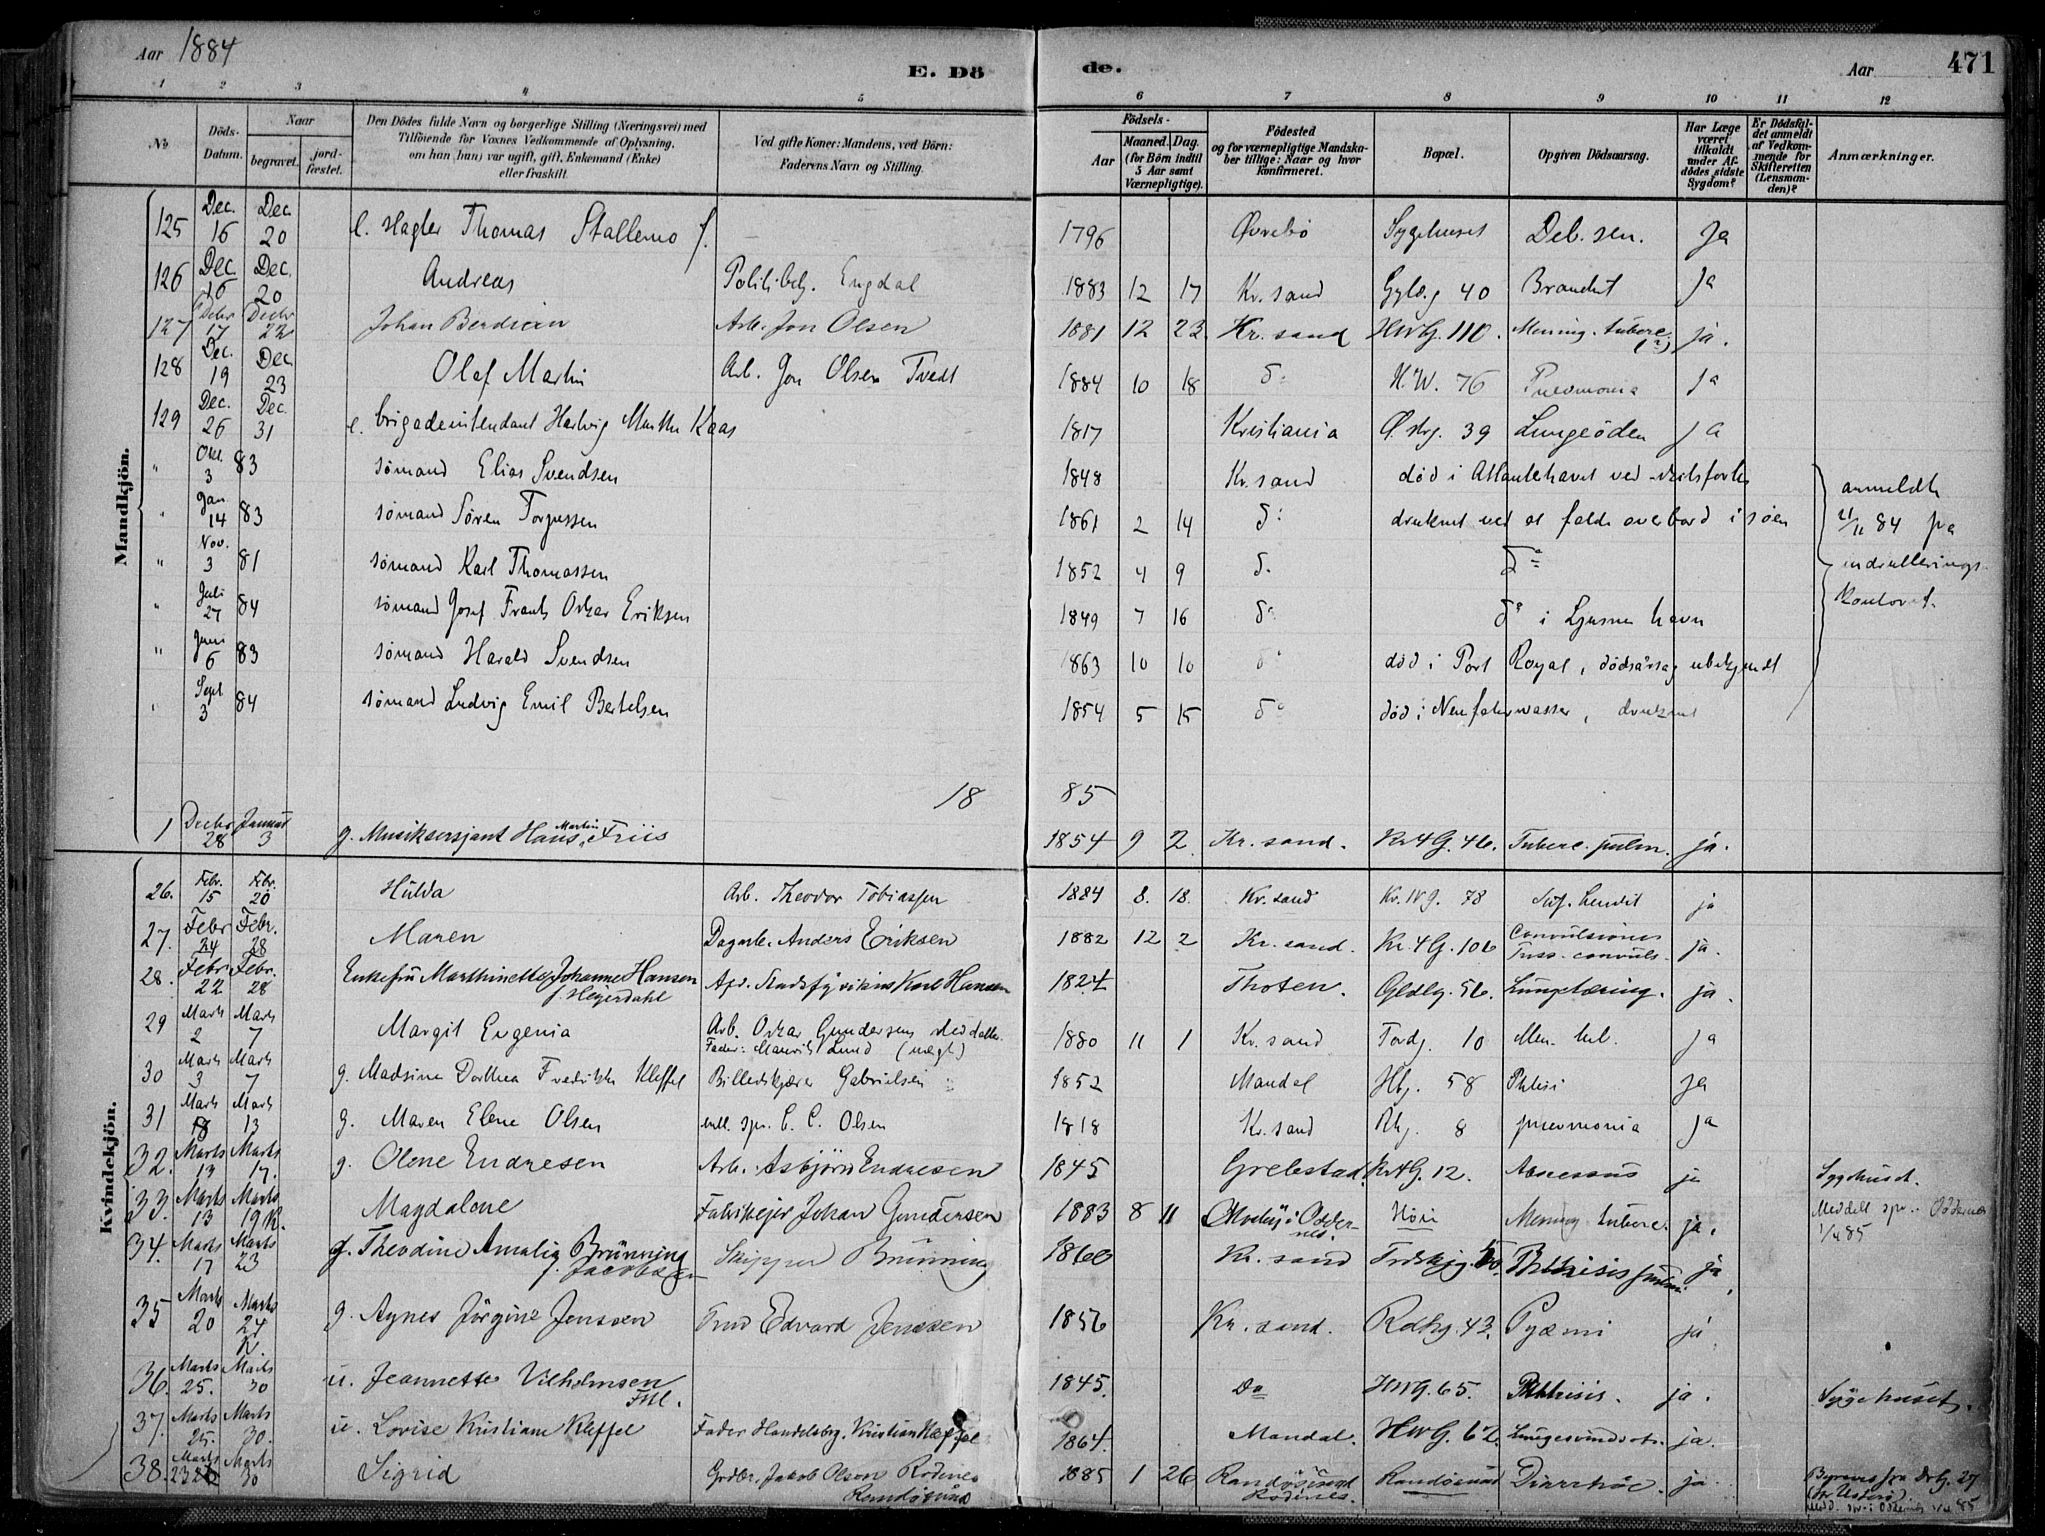 Aar 1884
E. Dö
de.
Aar
471
1 2 3 4 5 6 7 8 9 10 11 12
No
Döds-Datum.
Naar
begravet.
jord-fæstet.
Den Dödes fulde Navn og borgerlige Stilling (Næringsvei) med
Tilföiende for Voxnes Vedkommende af Oplysning,
om han (hun) var ugift, gift, Enkemand (Enke)
eller fraskilt.
Ved gifte Koner: Mandens, ved Börn:
Faderens Navn og Stilling.
Födsels-
Aar
Maaned. Dag.
(for Börn indtil
5 Aar samt
Værnepligtige).
Födested
og for værnepligtige Mandska-
ber tillige: Naar og hvor
konfirmeret.
Bopæl.
Opgiven Dödsaarsag.
Har Læge
været
tilkaldt
under Af-
dödes sidste
Sygdom?
Er Dödsfal-
det anmeldt
af Vedkom-
mende for
Skifteretten
(Lensman-
den)?
Anmærkninger.
Mandkjön.
125 Dec. 16 Dec 20 e. Hagler Thomas Stallemo f. 1796 Øvrebö Sygehuset Deb. sen. Ja
126 Dec. 16 Dec. 20 Andreas Politibetj. Engdal 1883 12 17 Kr. sand Gylg. 40 Brandsit Ja
127 Decbr 17 Decbr 22 Johan Berdian Arb. Jon Olsen 1881 12 23. Kr. sand HWG. 110. Mening. tuberc. (?) ja.
128 Dec. 19 Dec 23 Olaf Martin Arb. Jon Olsen Tvedt 1884 10 18 do H.W. 76 Pneumonia Ja
129 Dec. 26 Dec. 31 e. brigadeintendant Hartvig Munthe Kaas 1817 Kristiania Ø. stg. 39 Lungeöden Ja
" Okt. 3 83 sömand Elias Svendsen 1848 Kr. sand död i Atlanterhavet ved
" Jan 14 83 sömand Sören Torjussen 1861 2 14 do druknet ved at falde overbord i söen
" Nov. 3 81 sömand Karl Thomassen 1852 4 9 do do
" Juli 27 84 sömand Josef Frants Oskar Eriksen 1849 7 16 do do i Ljusne havn
" Juni 6 83 sömand Harald Svendsen 1863 10 10 do död i Port Royal, dödsårsag ubekjendt
" Sept 3 84 sömand Ludvig Emil Bertelsen 1854 5 15 do död i Neufahrwasser, druknet
anmeldt
21/11 84 på
indrullerings-
kontoret.
18 85
1 Decbr 28 Januar 3 g. Musiksersjant Hans Martin Friis 1854 9 2 Kr. sand. Kr4G. 46. Tuberc. pulm. ja.
Kvindekjön.
26. Febr. 15 Febr. 20 Hulda Arb. Theodor Tobiassen 1884 8. 18. Kr. sand Kr. IVG. 78 ja
27. Febr 24 Febr. 28 Maren Dagarb. Anders Eriksen 1882 12 2 Kr. sand. Kr. 4G. 106 Convulsiones
Tuss. convuls. ja.
28. Febr 22 Febr. 28 Enkefru Marthinette Johanne Hansen
f. Heyerdahl Afd. Stadsfysikus Karl Hansen 1824 Thoten. Gldlg. 56. Lungetæring. ja.
29 Marts 2 Marts 7 Margit Eugenia Arb. Oskar Gundersens steddatter.
Fader: Maurits Lund (uægt) 1880 11 1 Kr. sand Tordg. 10 Men. tub. Ja
30 Marts 3 Marts 7 g. Madsine Dorthea Fredrikke Kleffel Billedskjærer Gabrielsen 1852 Mandal Hbg. 58 Phtisi Ja
31 Marts 8 Marts 13 g. Maren Elene Olsen C. C. Olsen 1818 Kr. sand Rhg. 8 pneumonia Ja
32. Marts 13 Marts 17. g. Olene Endresen Arb. Asbjörn Endresen 1845 Grebstad. Kr4G. 12. Abscessus ja Sygehuset.
33. Marts 13 Marts 19 K. Magdalone Fabrikejer Johan Gundersen 1883 8 11 i Odder-
nes. Höie Mening. tuberc. ja. Meddelt spr. i Oddernes
1/4 85
34. Marts 17 Marts 23 g. Theodine Amalie Brünning
f. Jacobsen Skipper Brünning 1860 Kr. sand Phthisis pulm. ja.
35 Marts 20 Marts 24 K. g. Agnes Jörgine Jensen Edvard Jensen 1856 Kr. sand. Rdhg. 43. Pyæmi ja
36. Marts 25. Marts 30 u. Jeannette Vilhelmsen
Fttl. 1845. Do HWG. 65. Phthisis. ja. Sygehuset.
37. Marts 25. Marts 30. u. Lovise Kristiane Kleffel Fader Handelsbg. Kristian Kleffel 1864. Mandal. HWG. 62. ja.
38. Marts 23 Marts 30 Sigrid Grdbr. Jakob Olson Rodenes
Randösund 1885 1 26 Randösund
Rodenes. Randösund Diarrhöe. ja